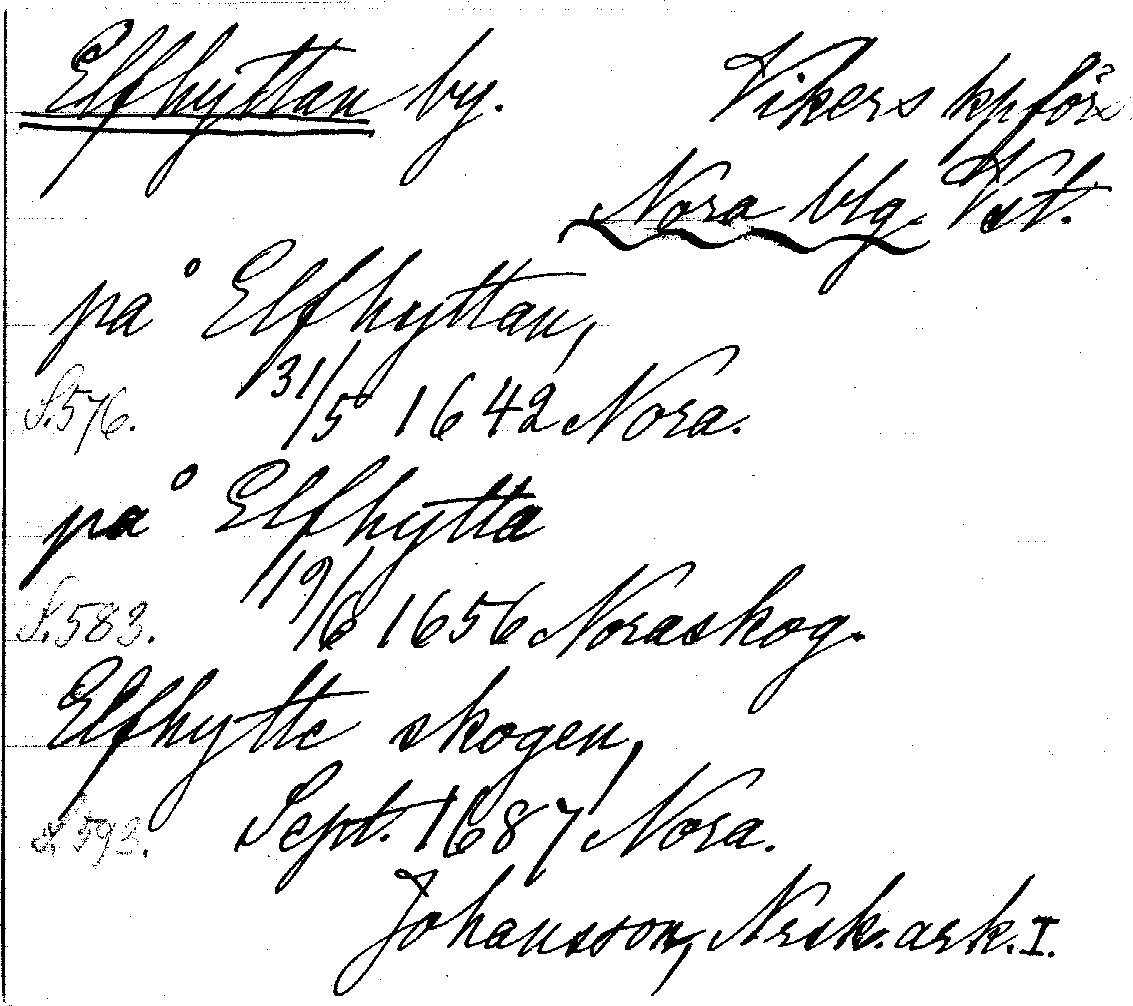 Elfhyttan by. Vikers kpförs
Nora blg. Vst.
på Elfhyttan,
S. 576. 31/5 1642 Nora.
på Elfhytta
S. 583. 19/6 1656 Noraskog.
Elfhytte skogen,
S. 593. Sept. 1687 Nora.
Johansson, Nrsk. ark. I.